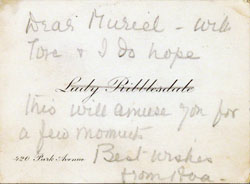 Dear Muriel - with
love & I do hope
Lady Ribblesdale
this will amuse you for
a few moments
420 Park Avenue
Best wishes
from Ava.